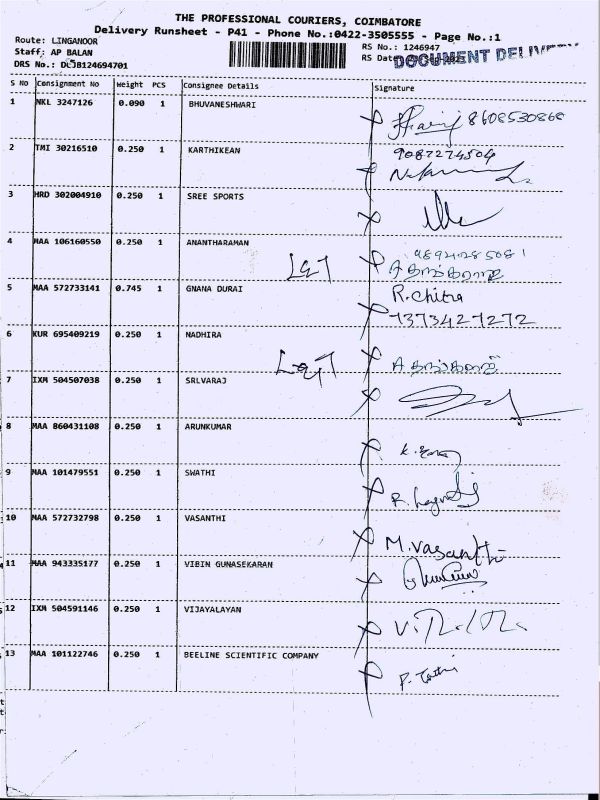 THE PROFESSIONAL COURIERS, COIMBATORE
Delivery Runsheet - P41 - Phone No.:0422-3505555 - Page No.:1
Route: LINGANOOR
Staff: AP BALAN
DRS No.: DCJB124694701
RS No.: 1246947
RS Dat
DOCUMENT DELIVERY
S NO Consignment No Weight PCS Consignee Details Signature
1 NKL 3247126 0.090 1 BHUVANESHWARI 8608530868
2 TMI 30216510 0.250 1 KARTHIKEAN 9087274504
3 HRD 302004910 0.250 1 SREE SPORTS
4 MAA 106160550 0.250 1 ANANTHARAMAN
5 MAA 572733141 0.745 1 GNANA DURAI R.Chitra
7373427272
6 KUR 695409219 0.250 1 NADHIRA
7 IXM 504507038 0.250 1 SRLVARAJ
8 MAA 860431108 0.250 1 ARUNKUMAR
9 MAA 101479551 0.250 1 SWATHI
10 MAA 572732798 0.250 1 VASANTHI M.Vasanthi
11 MAA 943335177 0.250 1 VIBIN GUNASEKARAN
12 IXM 504591146 0.250 1 VIJAYALAYAN
13 MAA 101122746 0.250 1 BEELINE SCIENTIFIC COMPANY